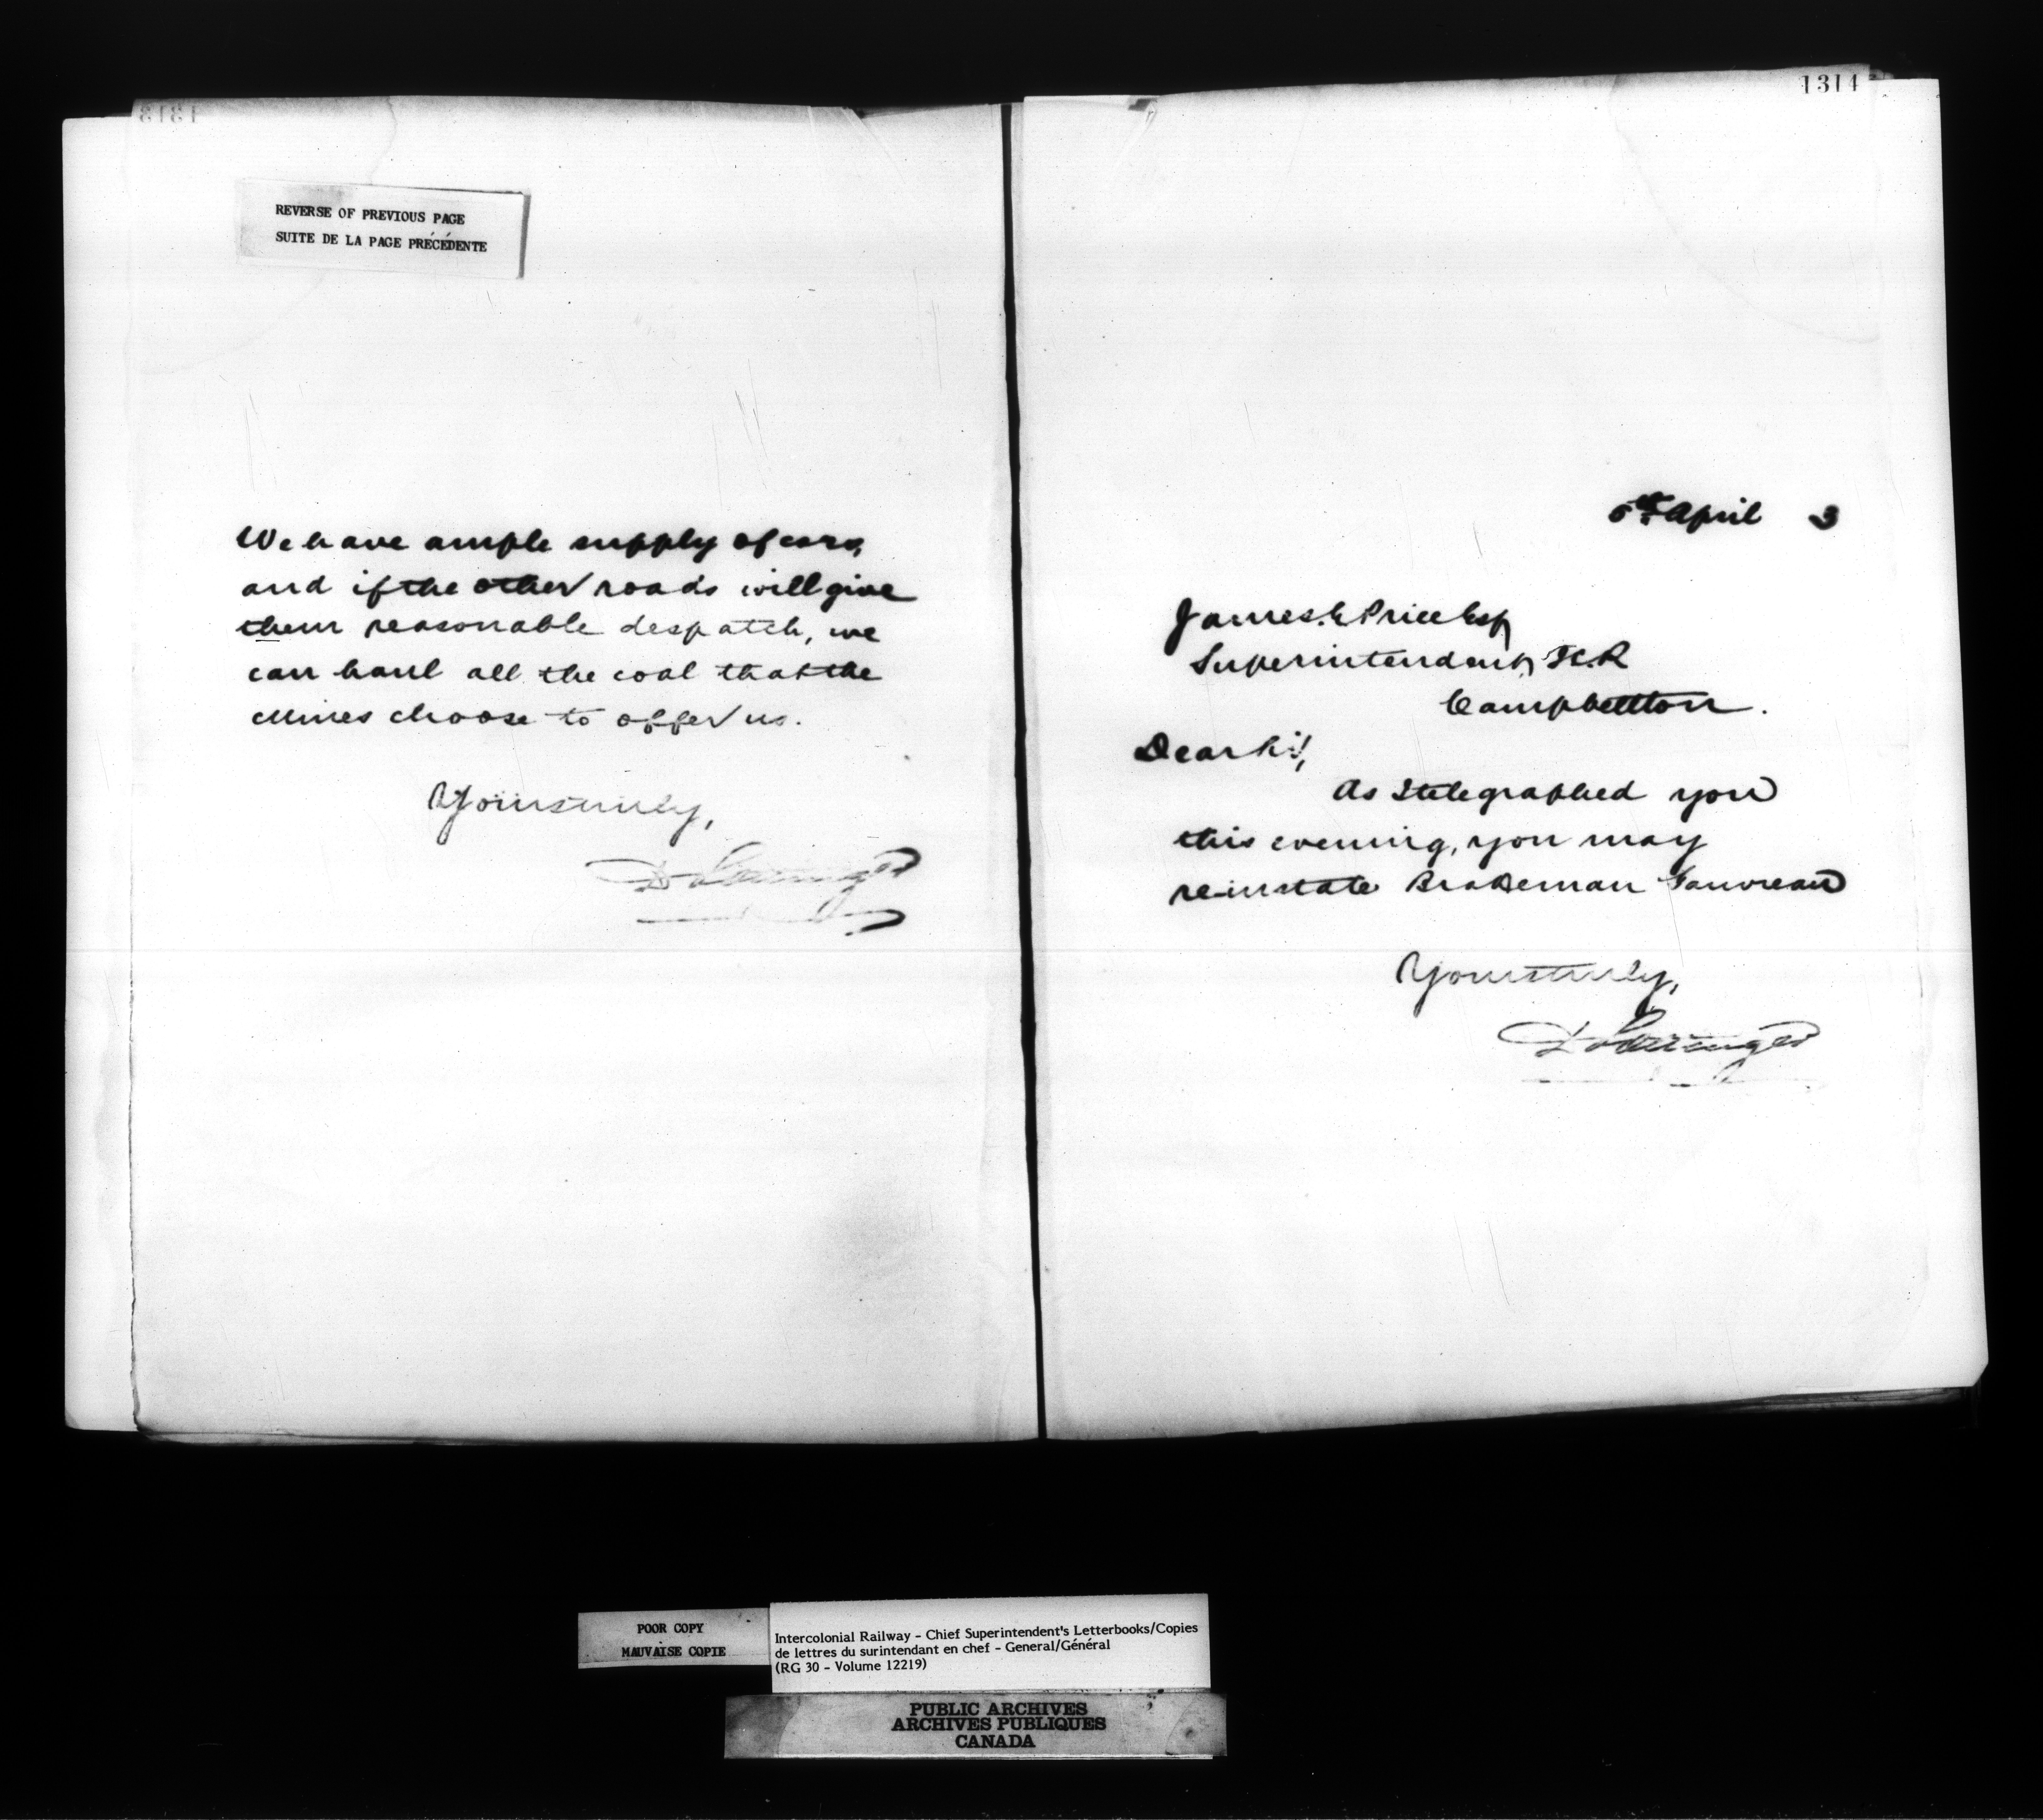 1313
REVERSE OF PREVIOUS PAGE
SUITE DE LA PAGE PRÉCÉDENTE
We have ample supply of cars,
and if the other roads will give
them reasonable despatch, we
can haul all the coal that the
Mines choose to offer us.
Yours truly,
D Pottinger
1314
5th April 3
James E Price Esq
Superintendent, I.C.R
Campbellton.
Dear Sir,
As I telegraphed you
this evening, you may
re-instate Brakeman Gauvreau
Yours truly,
D Pottinger
POOR COPY
MAUVAISE COPIE
Intercolonial Railway - Chief Superintendent's Letterbooks/Copies
de lettres du surintendant en chef - General/Général
(RG 30 - Volume 12219)
PUBLIC ARCHIVES
ARCHIVES PUBLIQUES
CANADA